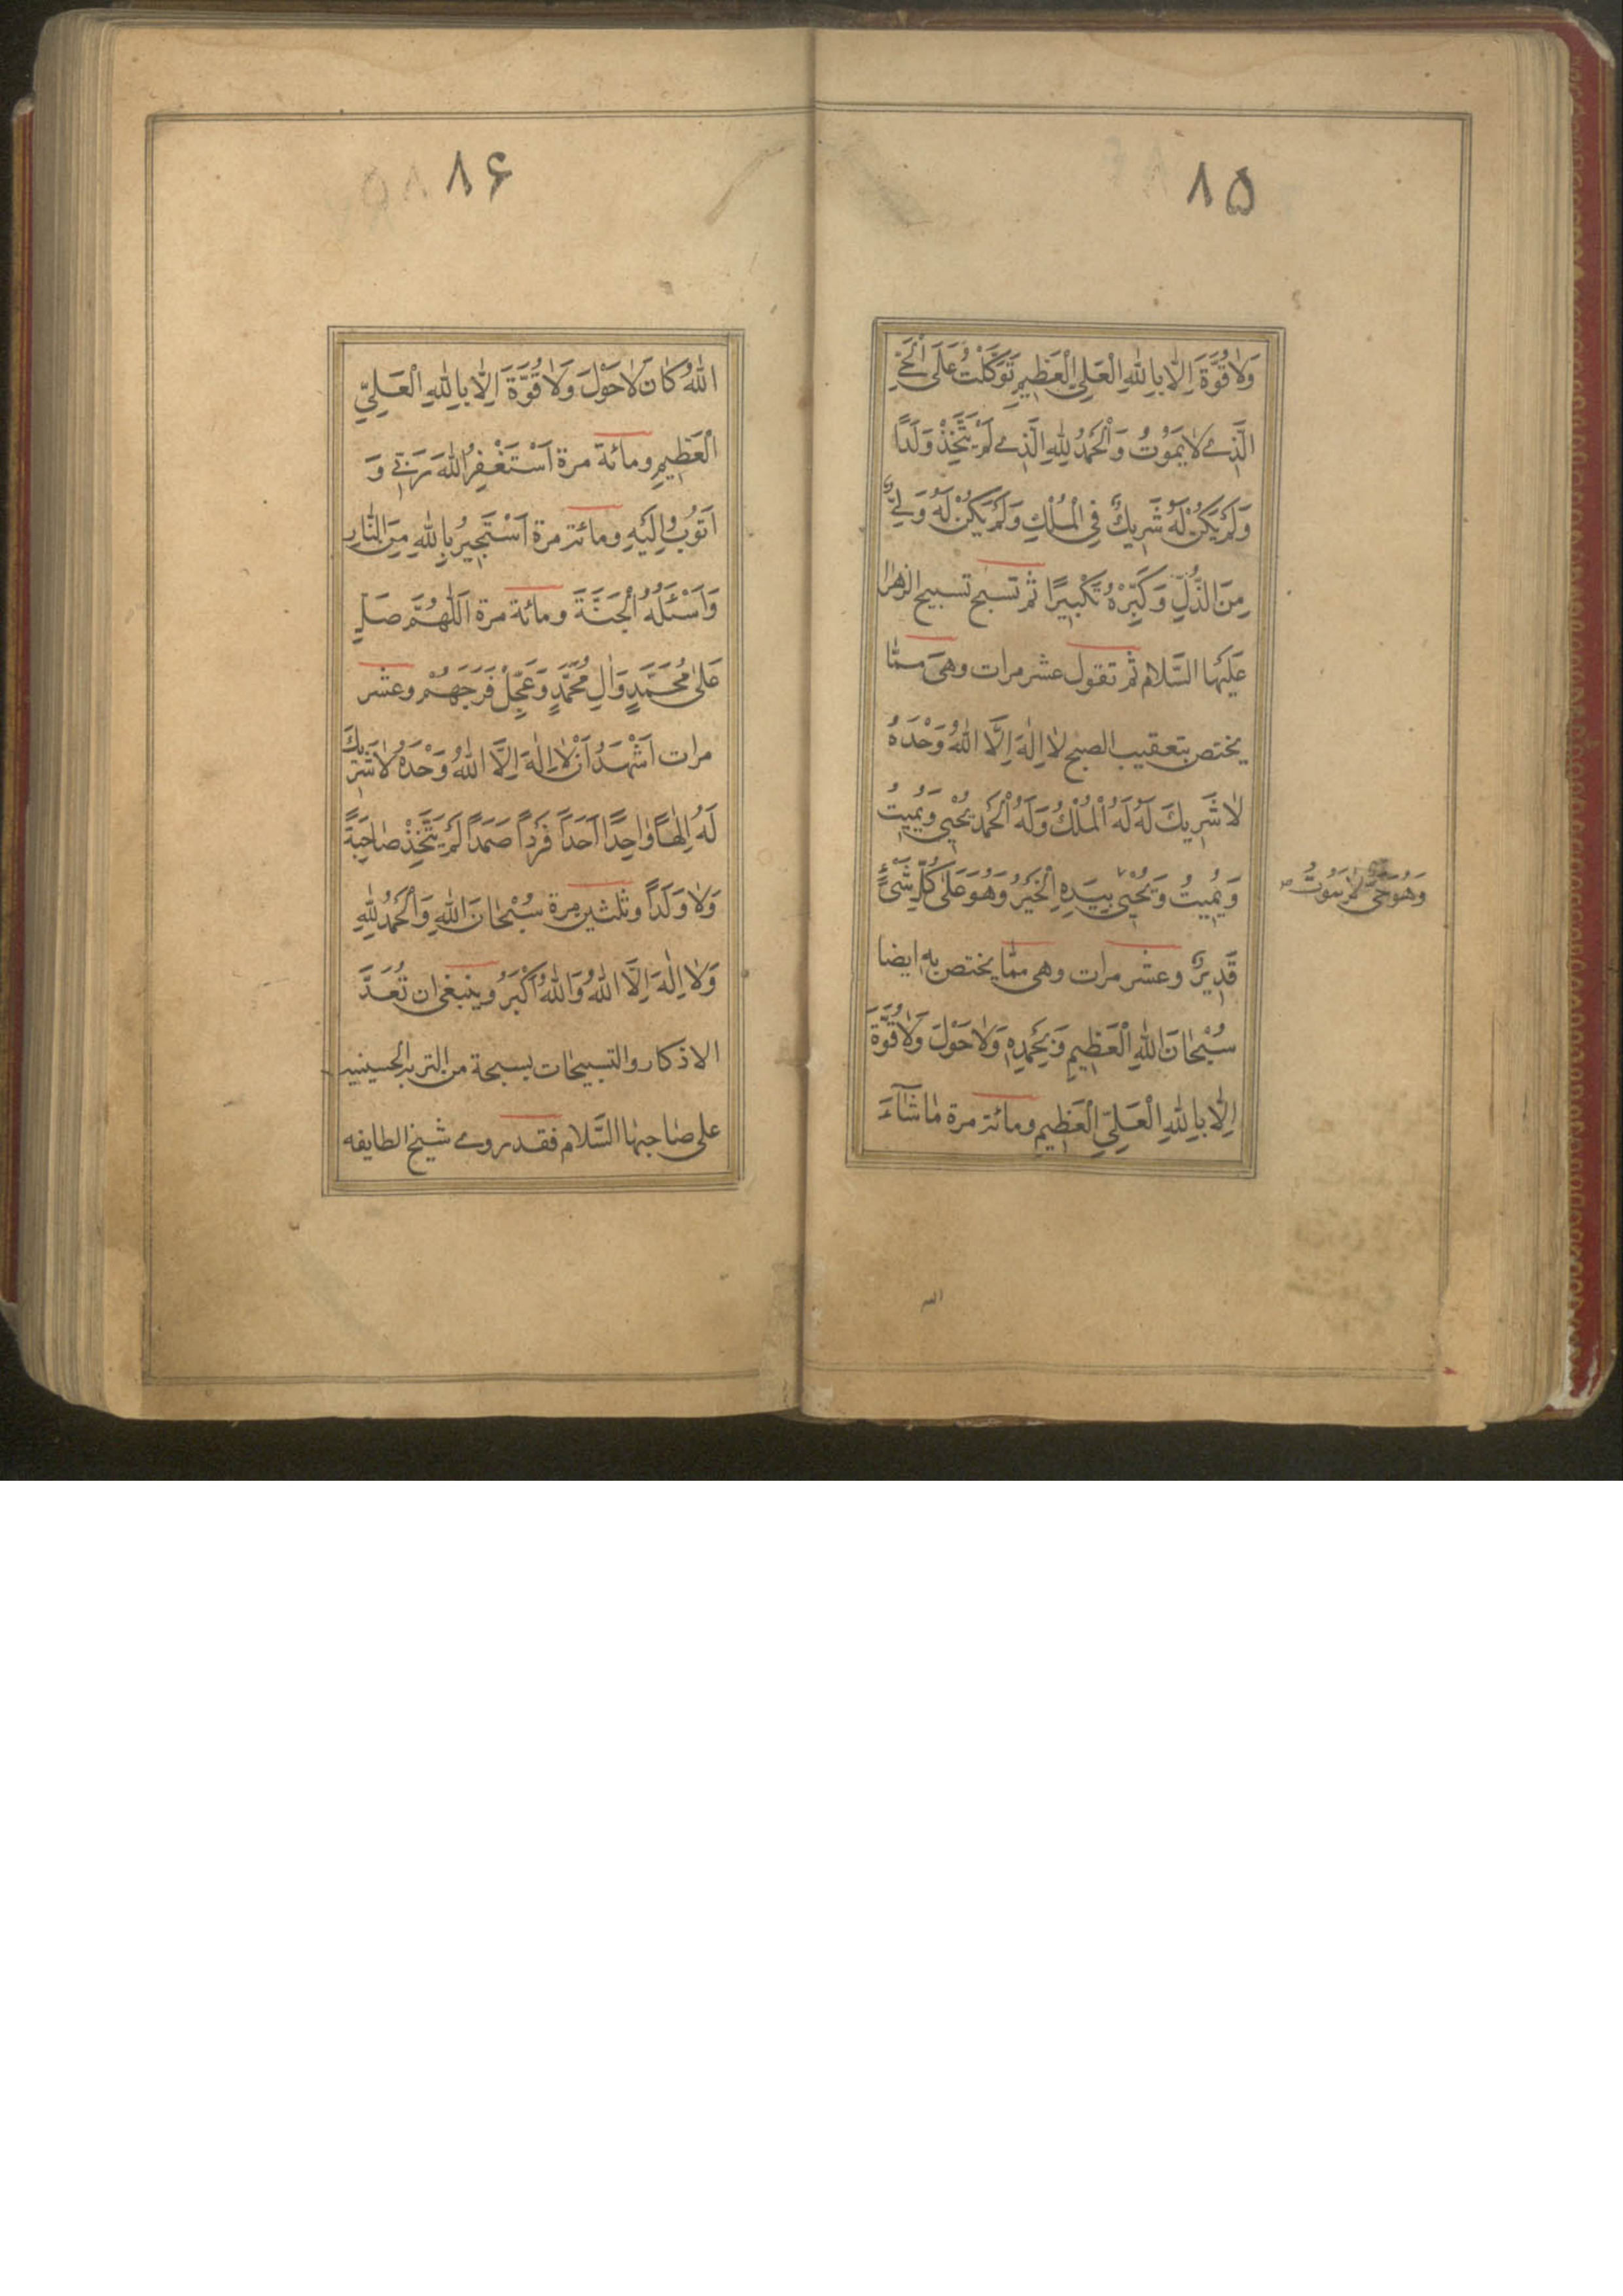 ۸۵
وَلَا قُوَّةَ اِلَّا بِاللّٰهِ الْعَلِيِّ الْعَظِيمِ تَوَكَّلْتُ عَلَى الْحَيِّ
الَّذِي لَا يَمُوتُ وَالْحَمْدُ لِلّٰهِ الَّذِي لَمْ يَتَّخِذْ وَلَدًا
وَلَمْ يَكُنْ لَهُ شَرِيكٌ فِي الْمُلْكِ وَلَمْ يَكُنْ لَهُ وَلِيٌّ
مِنَ الذُّلِّ وَكَبِّرْهُ تَكْبِيرًا ثم تسبح تسبيح الزهرا
عَلَيْهَا السَّلَام ثم تقول عشر مرات وهى ممّا
يختص بتعقيب الصبح لَا اِلٰهَ اِلَّا اللّٰهُ وَحْدَهُ
لَا شَرِيكَ لَهُ لَهُ الْمُلْكُ وَلَهُ الْحَمْدُ يُحْيِي وَيُمِيتُ
وَيُمِيتُ وَيُحْيِي بِيَدِهِ الْخَيْرُ وَهُوَ عَلَى كُلِّ شَيْءٍ
وَهُوَ حَيٌّ لَا يَمُوتُ
قَدِيرٌ وعشر مرات وهى ممّا يختص به ايضا
سُبْحَانَ اللّٰهِ الْعَظِيمِ وَبِحَمْدِهِ وَلَا حَوْلَ وَلَا قُوَّةَ
اِلَّا بِاللّٰهِ الْعَلِيِّ الْعَظِيمِ ومائة مرة مَا شَاءَ
الله
۸۶
اللّٰهُ كَانَ لَا حَوْلَ وَلَا قُوَّةَ اِلَّا بِاللّٰهِ الْعَلِيِّ
الْعَظِيمِ ومائة مرة اَسْتَغْفِرُ اللّٰهَ رَبِّي وَ
اَتُوبُ اِلَيْهِ ومائة مرة اَسْتَجِيرُ بِاللّٰهِ مِنَ النَّارِ
وَاَسْئَلُهُ الْجَنَّةَ ومائة مرة اَللّٰهُمَّ صَلِّ
عَلٰى مُحَمَّدٍ وَاٰلِ مُحَمَّدٍ وَعَجِّلْ فَرَجَهُمْ وعشر
مرات اَشْهَدُ اَنْ لَا اِلٰهَ اِلَّا اللّٰهُ وَحْدَهُ لَا شَرِيكَ
لَهُ اِلٰهًا وَاحِدًا اَحَدًا فَرْدًا صَمَدًا لَمْ يَتَّخِذْ صَاحِبَةً
وَلَا وَلَدًا وثلثين مرة سُبْحَانَ اللّٰهِ وَالْحَمْدُ لِلّٰهِ
وَلَا اِلٰهَ اِلَّا اللّٰهُ وَاللّٰهُ اَكْبَرُ وينبغى ان تُعَدَّ
الاذكار والتسبيحات بسبحة من التربة الحسينية
على صاحبها السَّلام فقد روى شيخ الطايفه